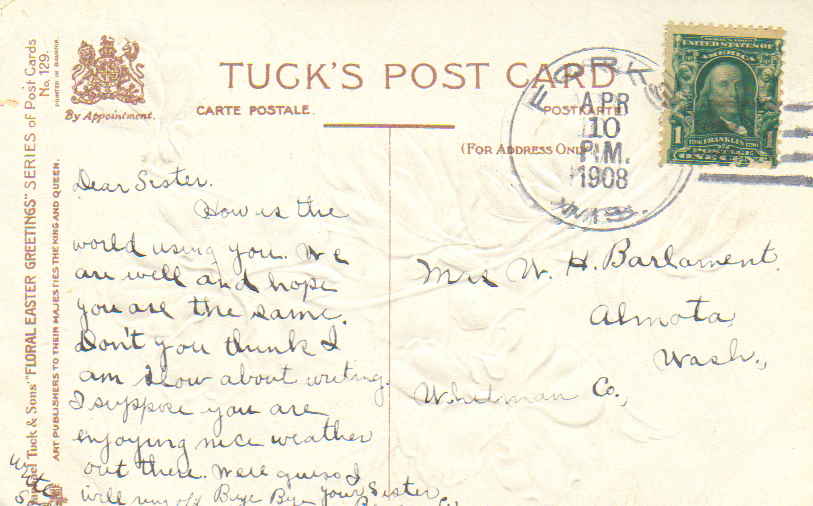 TUCK'S POST CARD
CARTE POSTALE.
POSTKARTE
(FOR ADDRESS ONLY
By Appointment.
Tuck & Sons' "FLORAL EASTER GREETINGS" SERIES of Post Cards
No. 129.
ART PUBLISHERS TO THEIR MAJESTIES THE KING AND QUEEN.
FORKS
APR
10
P.M.
1908
UNITED STATES OF
AMERICA
1 FRANKLIN 1
ONE CENT
Dear Sister.
How is the
world using you. We
are well and hope
you are the same.
Don't you think I
am slow about writing.
I suppose you are
enjoying nice weather
out there. Well guess I
will ring off Bye Bye Your Sister
write
Mrs W. H. Barlament.
Almota,
Wash.,
Whitman Co.,